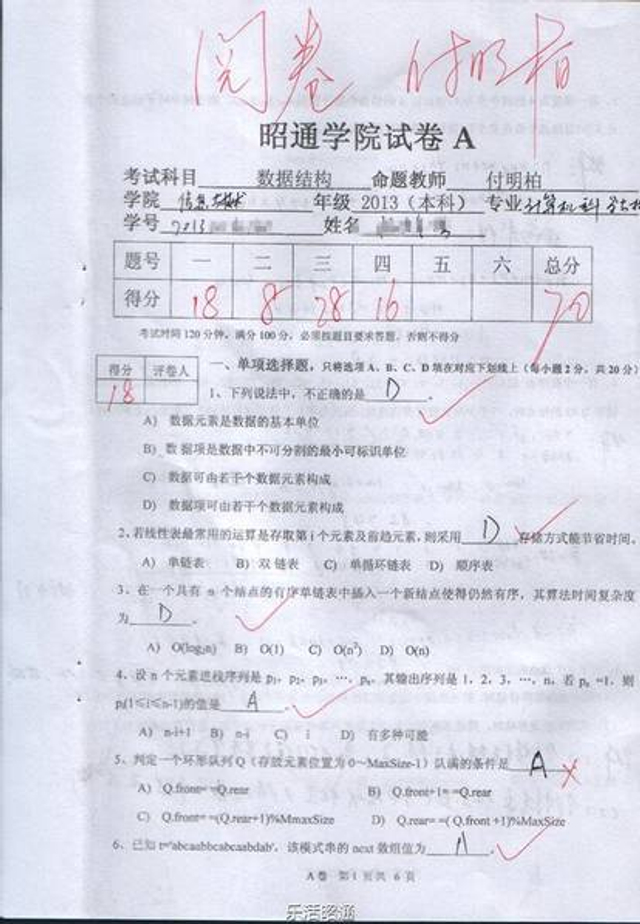 阅卷 付明柏
昭通学院试卷 A
考试科目 数据结构 命题教师 付明柏
学院 信息技术 年级 2013（本科） 专业 计算机科学与技
学号 2013 姓名
题号 一 二 三 四 五 六 总分
得分 18 8 28 16 70
考试时间 120 分钟，满分 100 分，必须按题目要求答题，否则不得分
得分 评卷人
18
一、单项选择题，只将选项 A、B、C、D 填在对应下划线上（每小题 2 分，共 20 分）
1、下列说法中，不正确的是 D 。
A) 数据元素是数据的基本单位
B) 数据项是数据中不可分割的最小可标识单位
C) 数据可由若干个数据元素构成
D) 数据项可由若干个数据元素构成
2、若线性表最常用的运算是存取第 i 个元素及前趋元素，则采用 D 存储方式能节省时间。
A) 单链表 B) 双链表 C) 单循环链表 D) 顺序表
3、在一个具有 n 个结点的有序单链表中插入一个新结点使得仍然有序，其算法时间复杂度
为 D 。
A) O(log₂n) B) O(1) C) O(n²) D) O(n)
4、设 n 个元素进栈序列是 p₁，p₂，p₃，…，pₙ，其输出序列是 1，2，3，…，n，若 pₙ =1，则
pᵢ(1≤i≤n-1)的值是 A 。
A) n-i+1 B) n-i C) i D) 有多种可能
5、判定一个环形队列 Q（存放元素位置为 0～MaxSize-1）队满的条件是 A
A) Q.front= =Q.rear B) Q.front+1= =Q.rear
C) Q.front= =(Q.rear+1)%MmaxSize D) Q.rear= =( Q.front +1)%MaxSize
6、已知 t='abcaabbcabcaabdab'，该模式串的 next 数组值为 A 。
A 卷 第 1 页共 6 页
乐活昭通